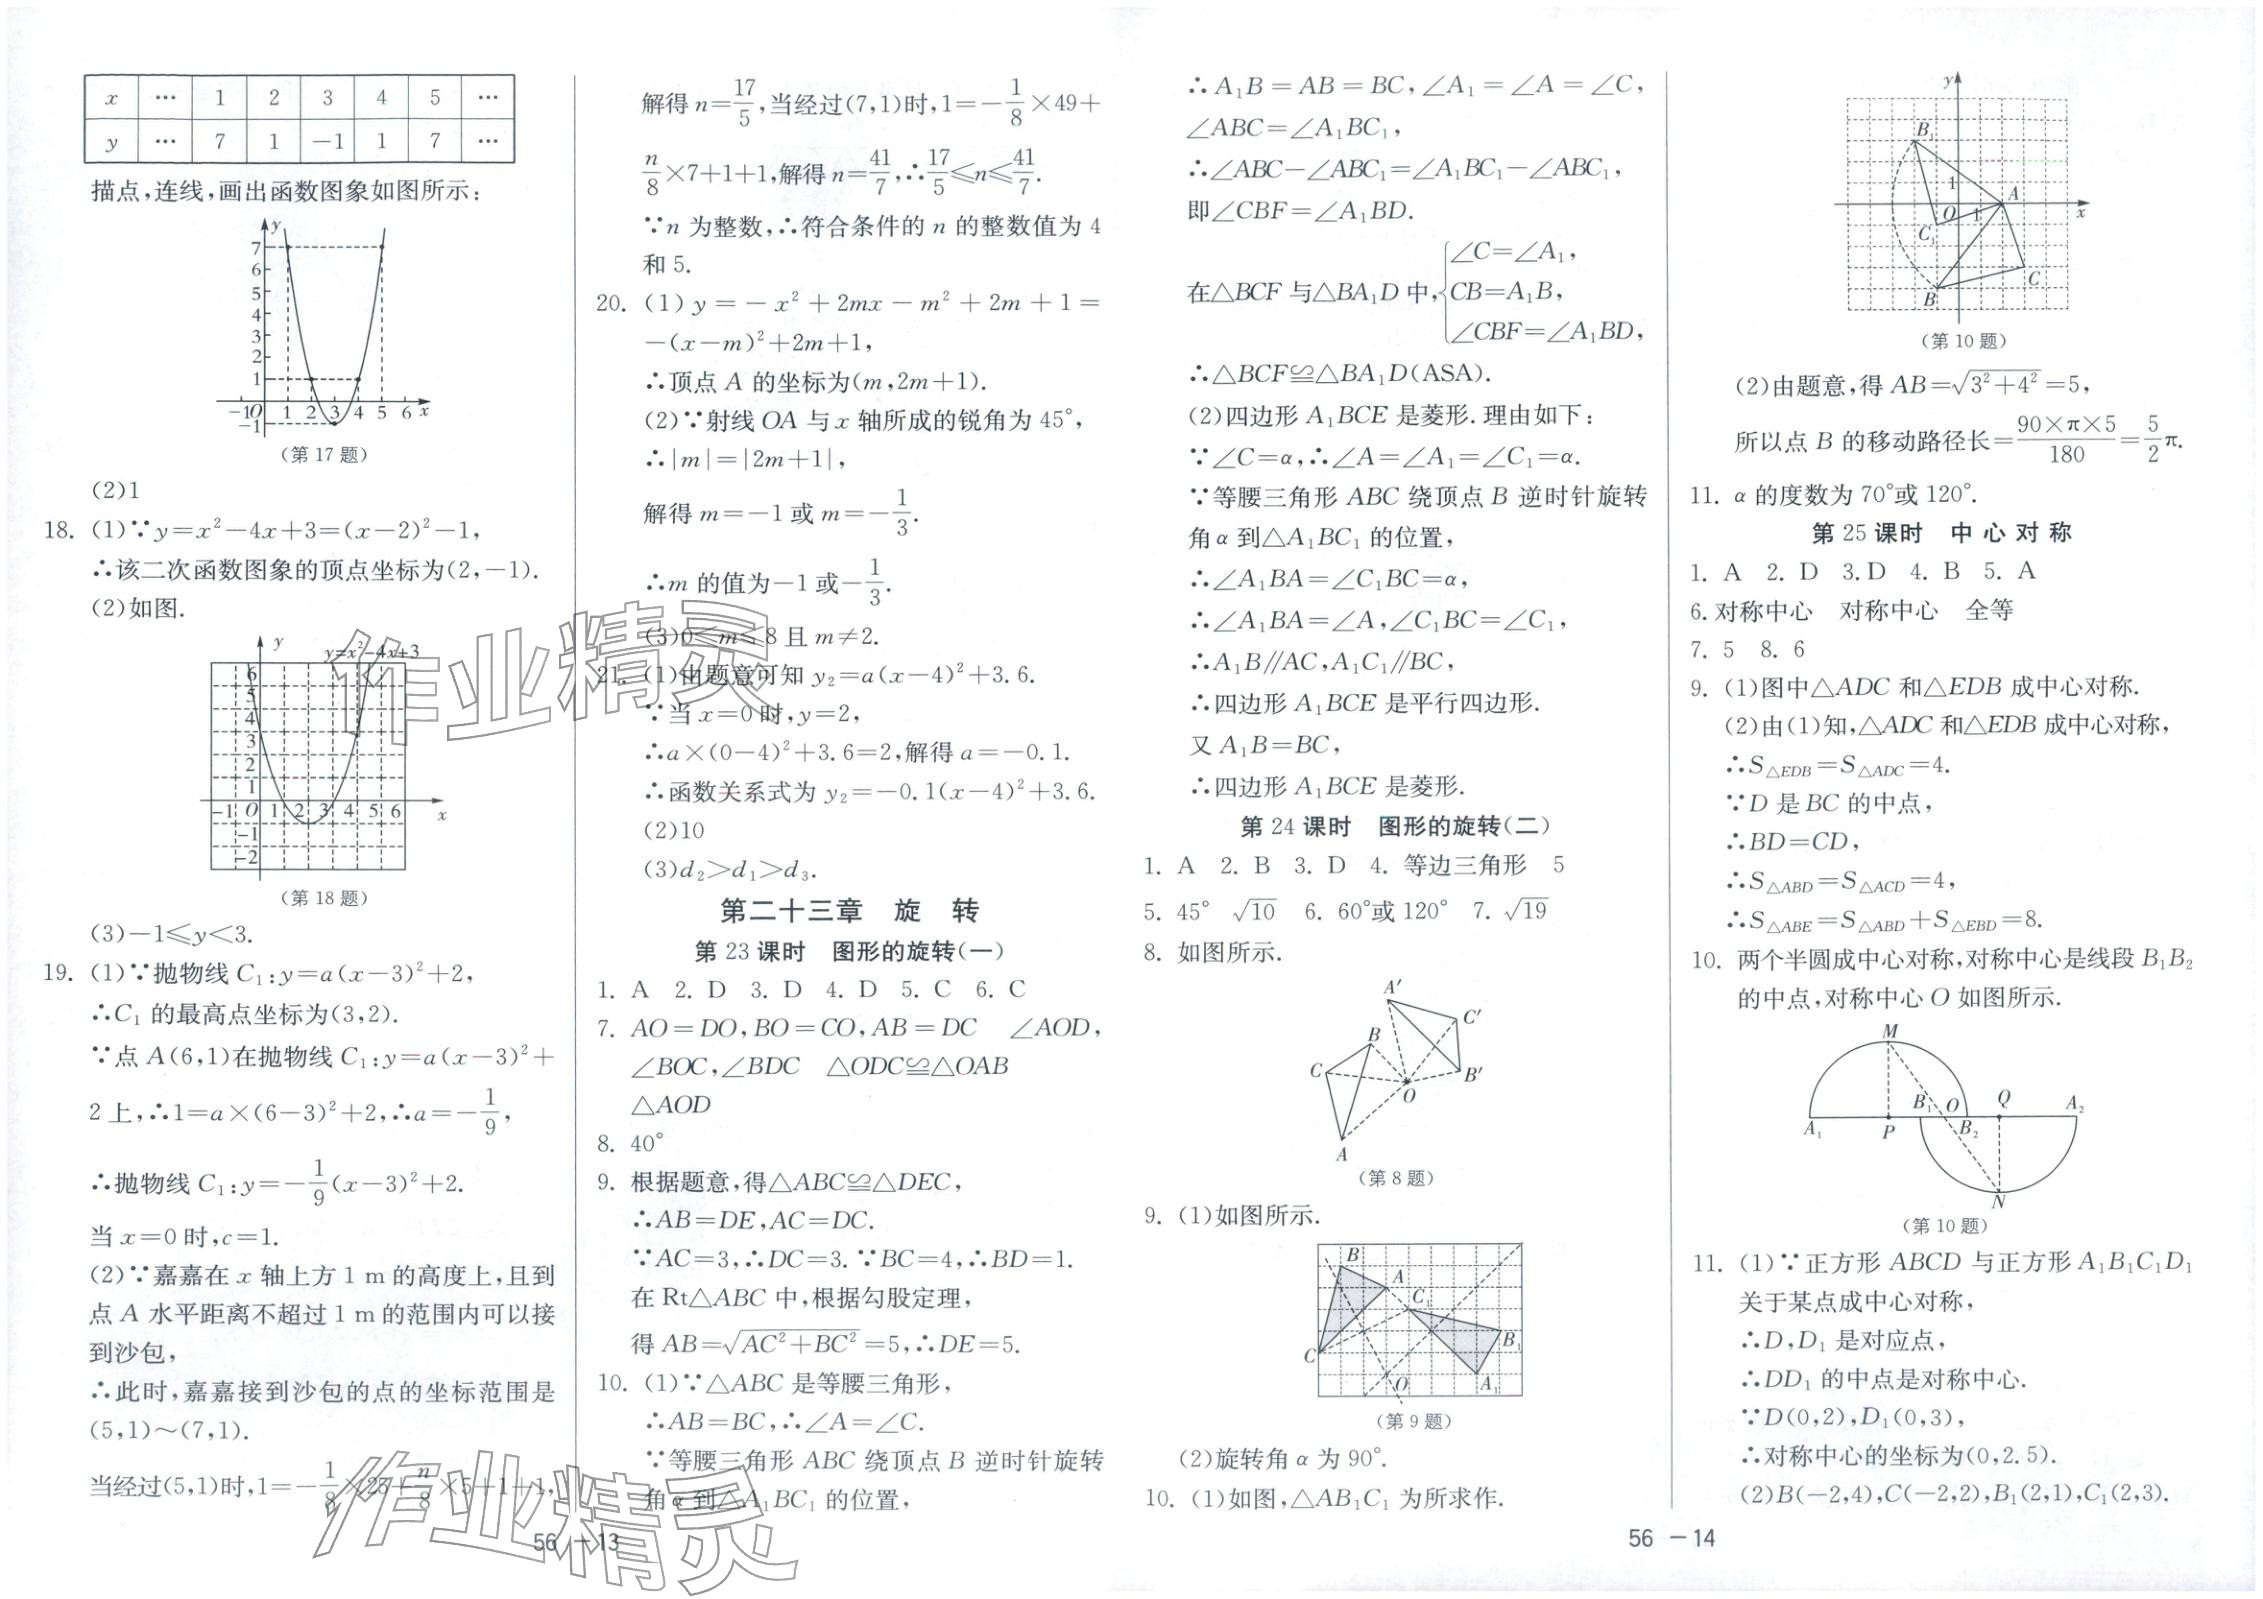 x … 1 2 3 4 5 …
y … 7 1 －1 1 7 …
描点,连线,画出函数图象如图所示:
y
7
6
5
4
3
2
1
－1 O 1 2 3 4 5 6 x
－1
(第 17 题)
(2)1
18. (1)∵y＝x²－4x＋3＝(x－2)²－1,
∴该二次函数图象的顶点坐标为(2,－1).
(2)如图.
y
y=x²－4x+3
6
5
4
3
2
1
－1 O 1 2 3 4 5 6 x
－1
－2
(第 18 题)
(3)－1≤y＜3.
19. (1)∵抛物线 C₁:y＝a(x－3)²＋2,
∴C₁ 的最高点坐标为(3,2).
∵点 A(6,1)在抛物线 C₁:y＝a(x－3)²＋
2 上,∴1＝a×(6－3)²＋2,∴a＝－1/9,
∴抛物线 C₁:y＝－1/9(x－3)²＋2.
当 x＝0 时,c＝1.
(2)∵嘉嘉在 x 轴上方 1 m 的高度上,且到
点 A 水平距离不超过 1 m 的范围内可以接
到沙包,
∴此时,嘉嘉接到沙包的点的坐标范围是
(5,1)～(7,1).
当经过(5,1)时,1＝－1/8×25＋n/8×5＋1＋1,
解得 n＝17/5,当经过(7,1)时,1＝－1/8×49＋
n/8×7＋1＋1,解得 n＝41/7,∴17/5≤n≤41/7.
∵n 为整数,∴符合条件的 n 的整数值为 4
和 5.
20. (1) y ＝－ x² ＋ 2mx － m² ＋ 2m ＋ 1 ＝
－(x－m)²＋2m＋1,
∴顶点 A 的坐标为(m,2m＋1).
(2)∵射线 OA 与 x 轴所成的锐角为 45°,
∴|m|＝|2m＋1|,
解得 m＝－1 或 m＝－1/3.
∴m 的值为－1 或－1/3.
(3)0≤m≤8 且 m≠2.
21. (1)由题意可知 y₂＝a(x－4)²＋3.6.
∵当 x＝0 时,y＝2,
∴a×(0－4)²＋3.6＝2,解得 a＝－0.1.
∴函数关系式为 y₂＝－0.1(x－4)²＋3.6.
(2)10
(3)d₂＞d₁＞d₃.
第二十三章 旋 转
第 23 课时 图形的旋转(一)
1. A 2. D 3. D 4. D 5. C 6. C
7. AO＝DO,BO＝CO,AB＝DC ∠AOD,
∠BOC,∠BDC △ODC≌△OAB
△AOD
8. 40°
9. 根据题意,得△ABC≌△DEC,
∴AB＝DE,AC＝DC.
∵AC＝3,∴DC＝3.∵BC＝4,∴BD＝1.
在 Rt△ABC 中,根据勾股定理,
得 AB＝√(AC²＋BC²)＝5,∴DE＝5.
10. (1)∵△ABC 是等腰三角形,
∴AB＝BC,∴∠A＝∠C.
∵等腰三角形 ABC 绕顶点 B 逆时针旋转
角 α 到△A₁BC₁ 的位置,
56 －13
∴A₁B＝AB＝BC,∠A₁＝∠A＝∠C,
∠ABC＝∠A₁BC₁,
∴∠ABC－∠ABC₁＝∠A₁BC₁－∠ABC₁,
即∠CBF＝∠A₁BD.
∠C＝∠A₁,
在△BCF 与△BA₁D 中,{CB＝A₁B,
∠CBF＝∠A₁BD,
∴△BCF≌△BA₁D(ASA).
(2)四边形 A₁BCE 是菱形.理由如下:
∵∠C＝α,∴∠A＝∠A₁＝∠C₁＝α.
∵等腰三角形 ABC 绕顶点 B 逆时针旋转
角 α 到△A₁BC₁ 的位置,
∴∠A₁BA＝∠C₁BC＝α,
∴∠A₁BA＝∠A,∠C₁BC＝∠C₁,
∴A₁B∥AC,A₁C₁∥BC,
∴四边形 A₁BCE 是平行四边形.
又 A₁B＝BC,
∴四边形 A₁BCE 是菱形.
第 24 课时 图形的旋转(二)
1. A 2. B 3. D 4. 等边三角形 5
5. 45° √10 6. 60°或 120° 7. √19
8. 如图所示.
A′
C′
B
C
B′
O
A
(第 8 题)
9. (1)如图所示.
B
A
C₁
B₁
C
O
A₁
(第 9 题)
(2)旋转角 α 为 90°.
10. (1)如图,△AB₁C₁ 为所求作.
y
B₁
1
A
O 1 x
C₁
C
B
(第 10 题)
(2)由题意,得 AB＝√(3²＋4²)＝5,
所以点 B 的移动路径长＝90×π×5/180＝5/2π.
11. α 的度数为 70°或 120°.
第 25 课时 中 心 对 称
1. A 2. D 3. D 4. B 5. A
6. 对称中心 对称中心 全等
7. 5 8. 6
9. (1)图中△ADC 和△EDB 成中心对称.
(2)由(1)知,△ADC 和△EDB 成中心对称,
∴S△EDB＝S△ADC＝4.
∵D 是 BC 的中点,
∴BD＝CD,
∴S△ABD＝S△ACD＝4,
∴S△ABE＝S△ABD＋S△EBD＝8.
10. 两个半圆成中心对称,对称中心是线段 B₁B₂
的中点,对称中心 O 如图所示.
M
B₁ O Q A₂
A₁ P B₂
N
(第 10 题)
11. (1)∵正方形 ABCD 与正方形 A₁B₁C₁D₁
关于某点成中心对称,
∴D,D₁ 是对应点,
∴DD₁ 的中点是对称中心.
∵D(0,2),D₁(0,3),
∴对称中心的坐标为(0,2.5).
(2)B(－2,4),C(－2,2),B₁(2,1),C₁(2,3).
56 －14
作业精灵
作业精灵